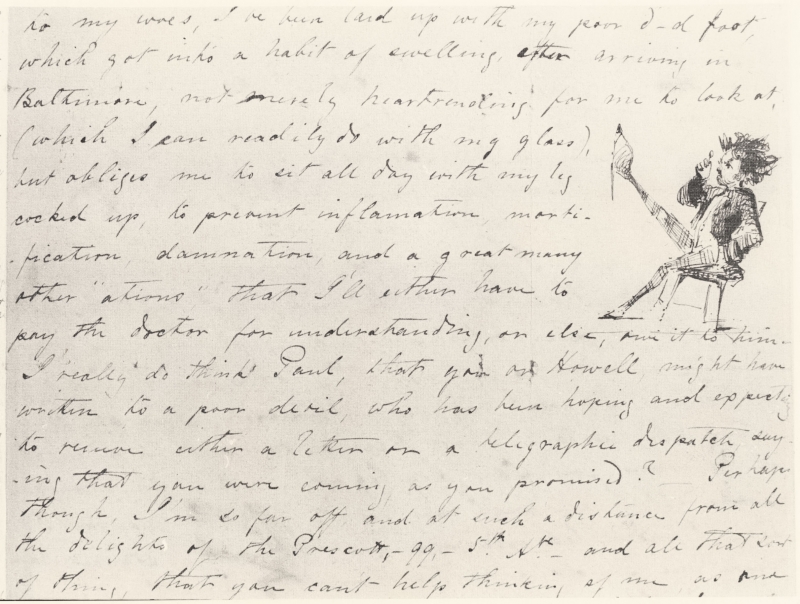 to my woes, I've been laid up with my poor d-d foot,
which got into a habit of swelling, after arriving in
Baltimore, not merely heartrending for me to look at,
(which I can readily do with my glass),
but obliges me to sit all day with my leg
cocked up, to prevent inflamation, morti-
-fication, damnation, and a great many
other "ations" that I'll either have to
pay the doctor for understanding, or else, owe it to him.
I really do think Paul, that you or Howell might have
written to a poor devil, who has been hoping and expectg
to receive either a letter or a telegraphic dispatch say-
-ing that you were coming as you promised? Perhaps
though, I'm so far off, and at such a distance from all
the delights of the Prescott, -99,- 5th Ave - and all that sort
of thing, that you cant help thinking of me, as one